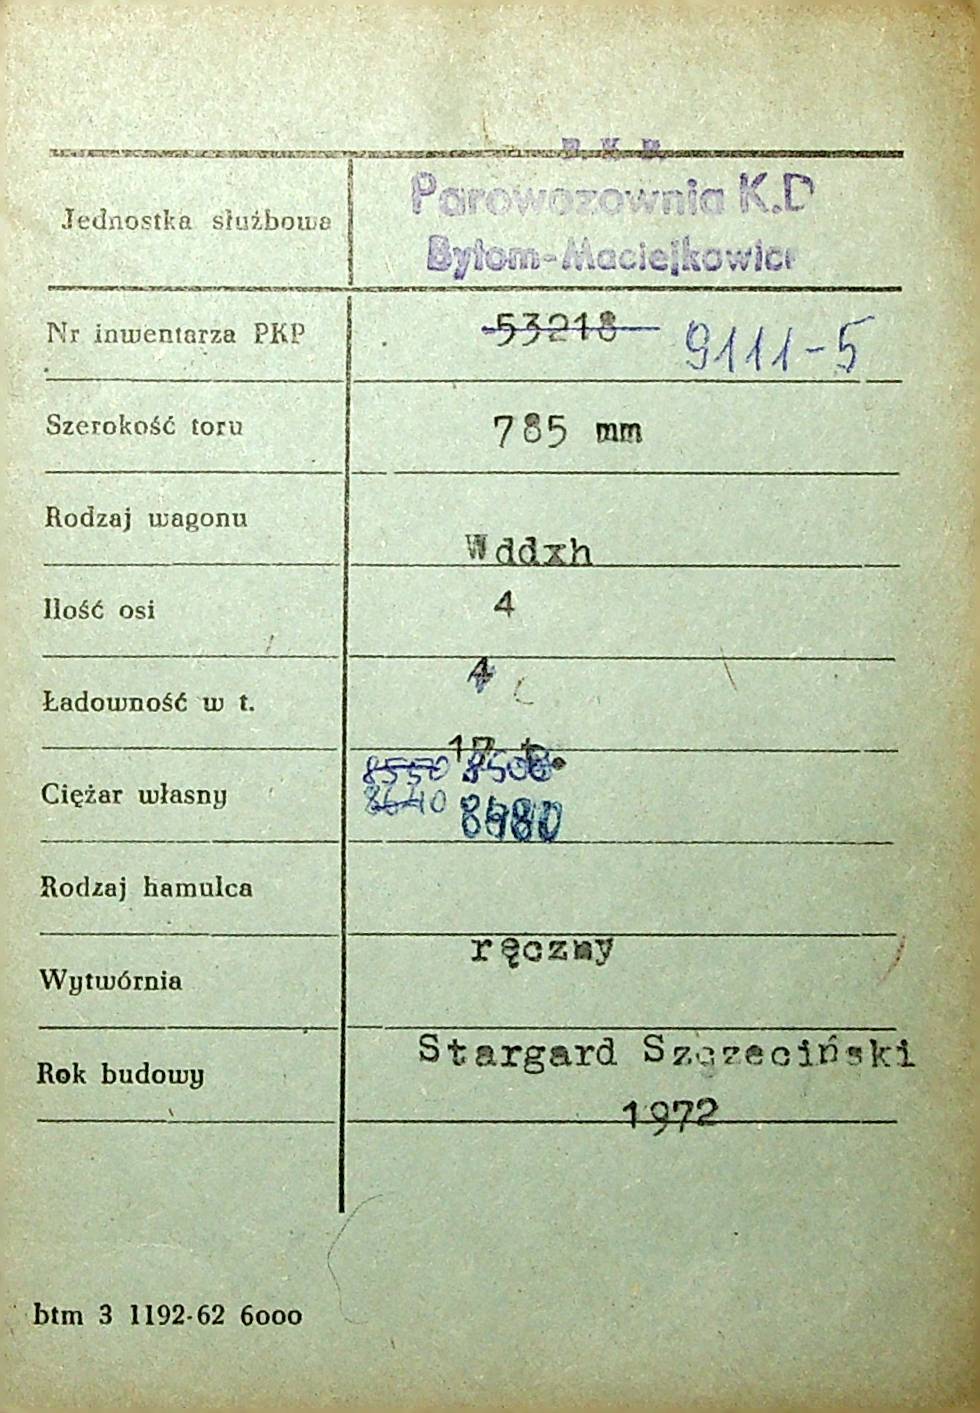 P. K. P.
Parowozownia K.D
Jednostka służbowa
Bytom-Maciejkowice
Nr inwentarza PKP 53218 9111-5
Szerokość toru 785 mm
Rodzaj wagonu Wddxh
Ilość osi 4
4
Ładowność w t.
17 t.
8550 8500
Ciężar własny 8640
Rodzaj hamulca
ręczny
Wytwórnia
Stargard Szczeciński
Rok budowy
1972
btm 3 1192-62 6000